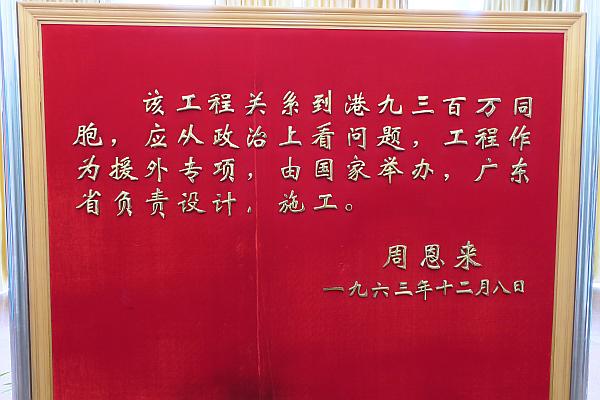 该工程关系到港九三百万同
胞，应从政治上看问题，工程作
为援外专项，由国家举办，广东
省负责设计、施工。
周恩来
一九六三年十二月八日